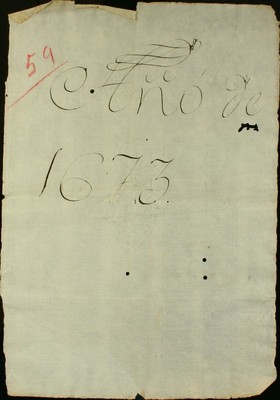 59
Año de
1673.